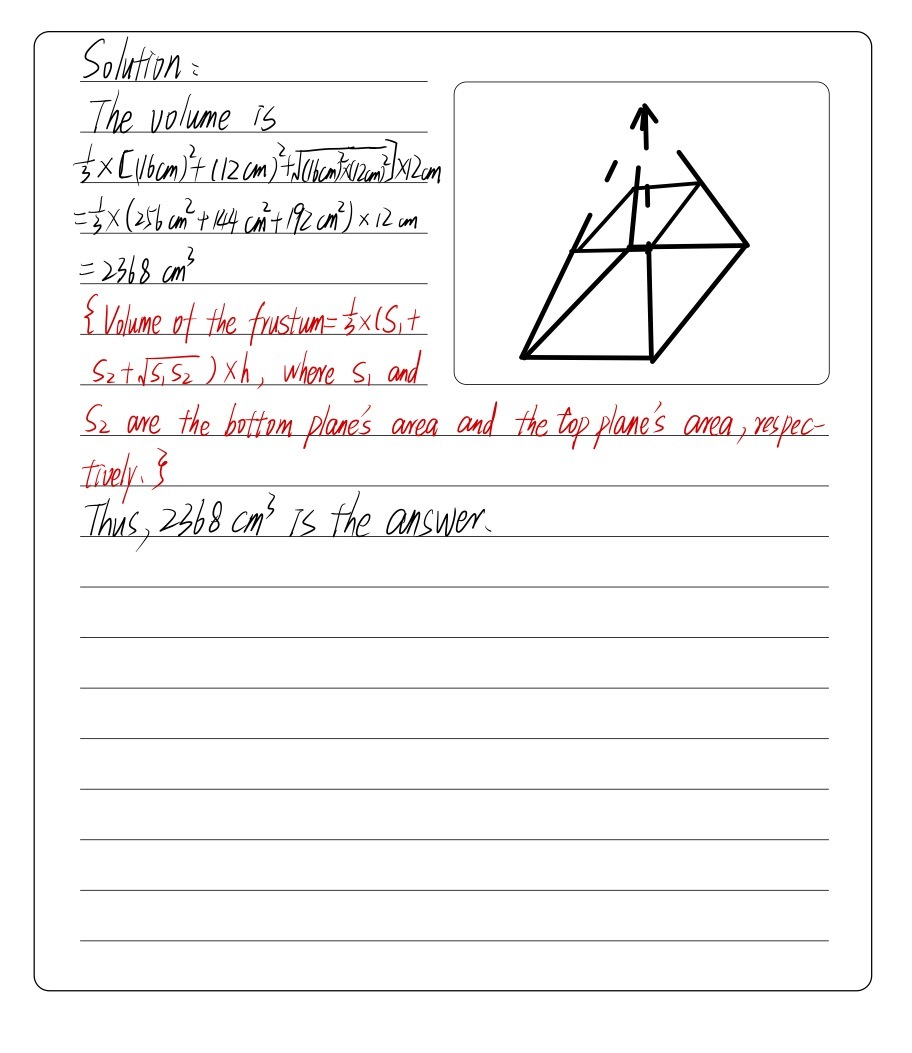 Solution:
The volume is
1/3 × [(16cm)²+(12cm)²+√((16cm)²×(12cm)²)]×12cm
=1/3×(256cm²+144cm²+192cm²)×12cm
=2368 cm³
{Volume of the frustum=1/3×(S₁+
S₂+√(S₁S₂))×h, where S₁ and
S₂ are the bottom plane's area and the top plane's area, respec-
tively.}
Thus, 2368 cm³ is the answer.